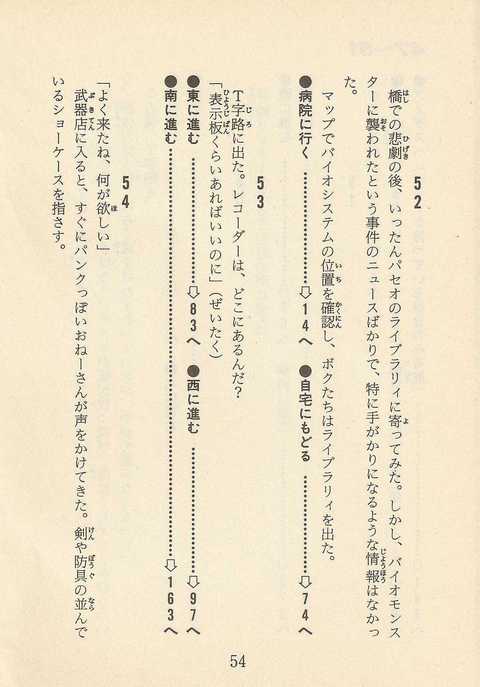 52
橋での悲劇の後、いったんパセオのライブラリィに寄ってみた。しかし、バイオモンス
ターに襲われたという事件のニュースばかりで、特に手がかりになるような情報はなかっ
た。
マップでバイオシステムの位置を確認し、ボクたちはライブラリィを出た。
●病院に行く…………⇨14へ ●自宅にもどる…………⇨74へ
53
T字路に出た。レコーダーは、どこにあるんだ？
「表示板くらいあればいいのに」（ぜいたく）
●東に進む…………⇨83へ ●西に進む…………⇨97へ
●南に進む…………⇨163へ
54
「よく来たね、何が欲しい」
武器店に入ると、すぐにパンクっぽいおねーさんが声をかけてきた。剣や防具の並んで
いるショーケースを指さす。
54